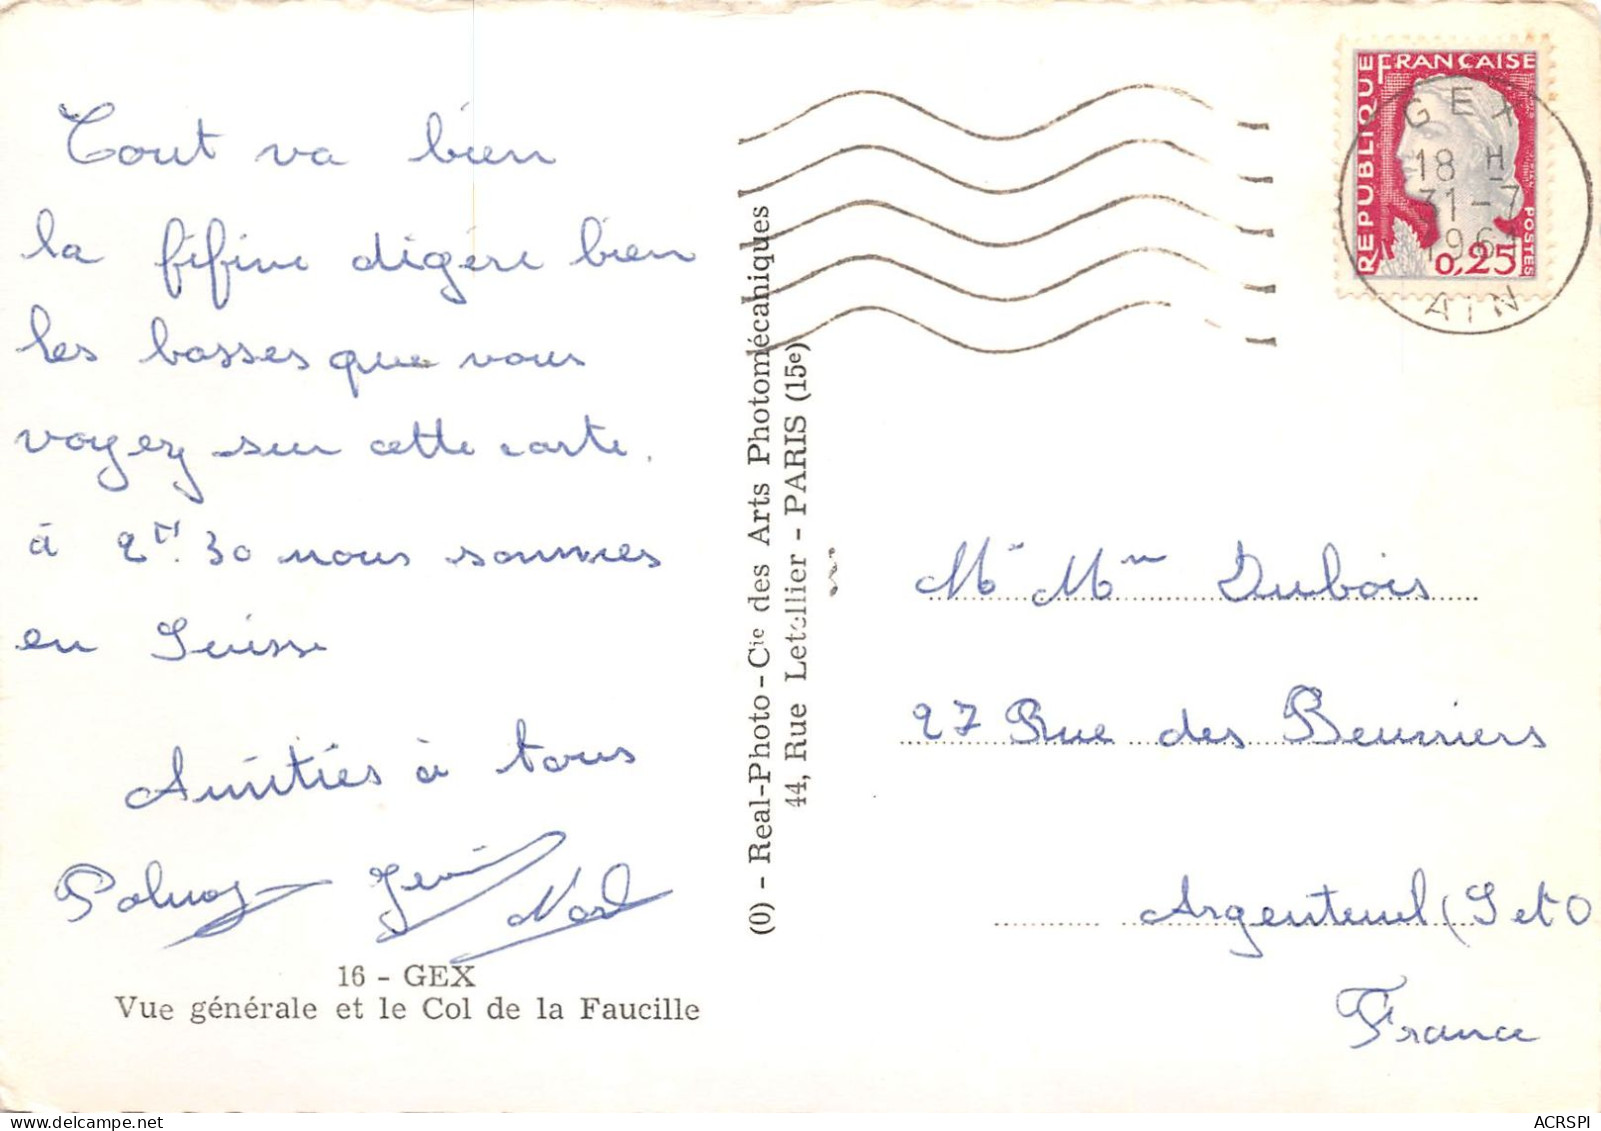 Tout va bien
la fifine digère bien
les bosses que vous
voyez sur cette carte.
à 2H.30 nous sommes
en Suisse
Amitiés à tous
16 - GEX
Vue générale et le Col de la Faucille
(O) - Real-Photo - Cie des Arts Photomécaniques
44, Rue Letellier - PARIS (15e)
RÉPUBLIQUE FRANÇAISE
POSTES
0,25
GEX
18 H
31-7
1961
AIN
Mr Mme Dubois
27 Rue des
Argenteuil (S et O
France
ACRSPI